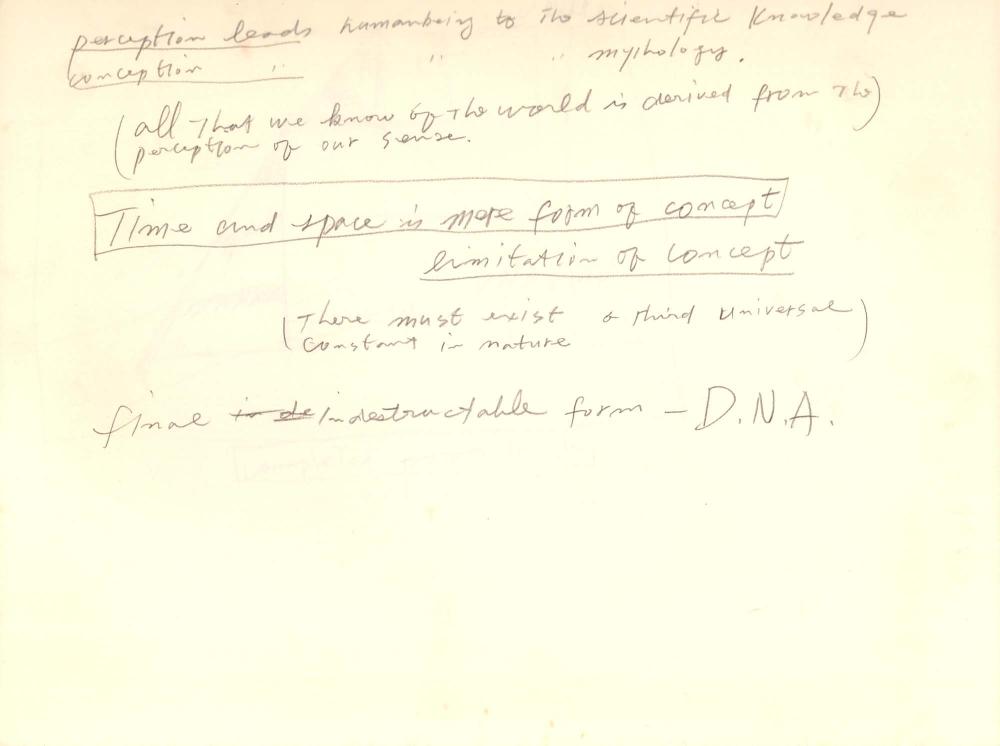 perception leads humanbeing to the scientific Knowledge
conception " " " mythology.
(all that we know of the world is derived from the)
perception of our sense.
Time and space is mere form of concept
limitation of concept
(There must exist a third universal)
constant in nature
final in de indestructable form — D.N.A.